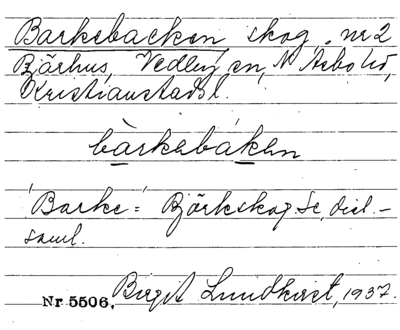 Barkebacken skog, nr 2
Bjärhus, Vedby sn, N Åsbo hd,
Kristianstads l.
bàrkebákən
'Barke' = Björkskog. Se dial.-
saml.
Nr 5506, Birgit Lundkvist, 1937.